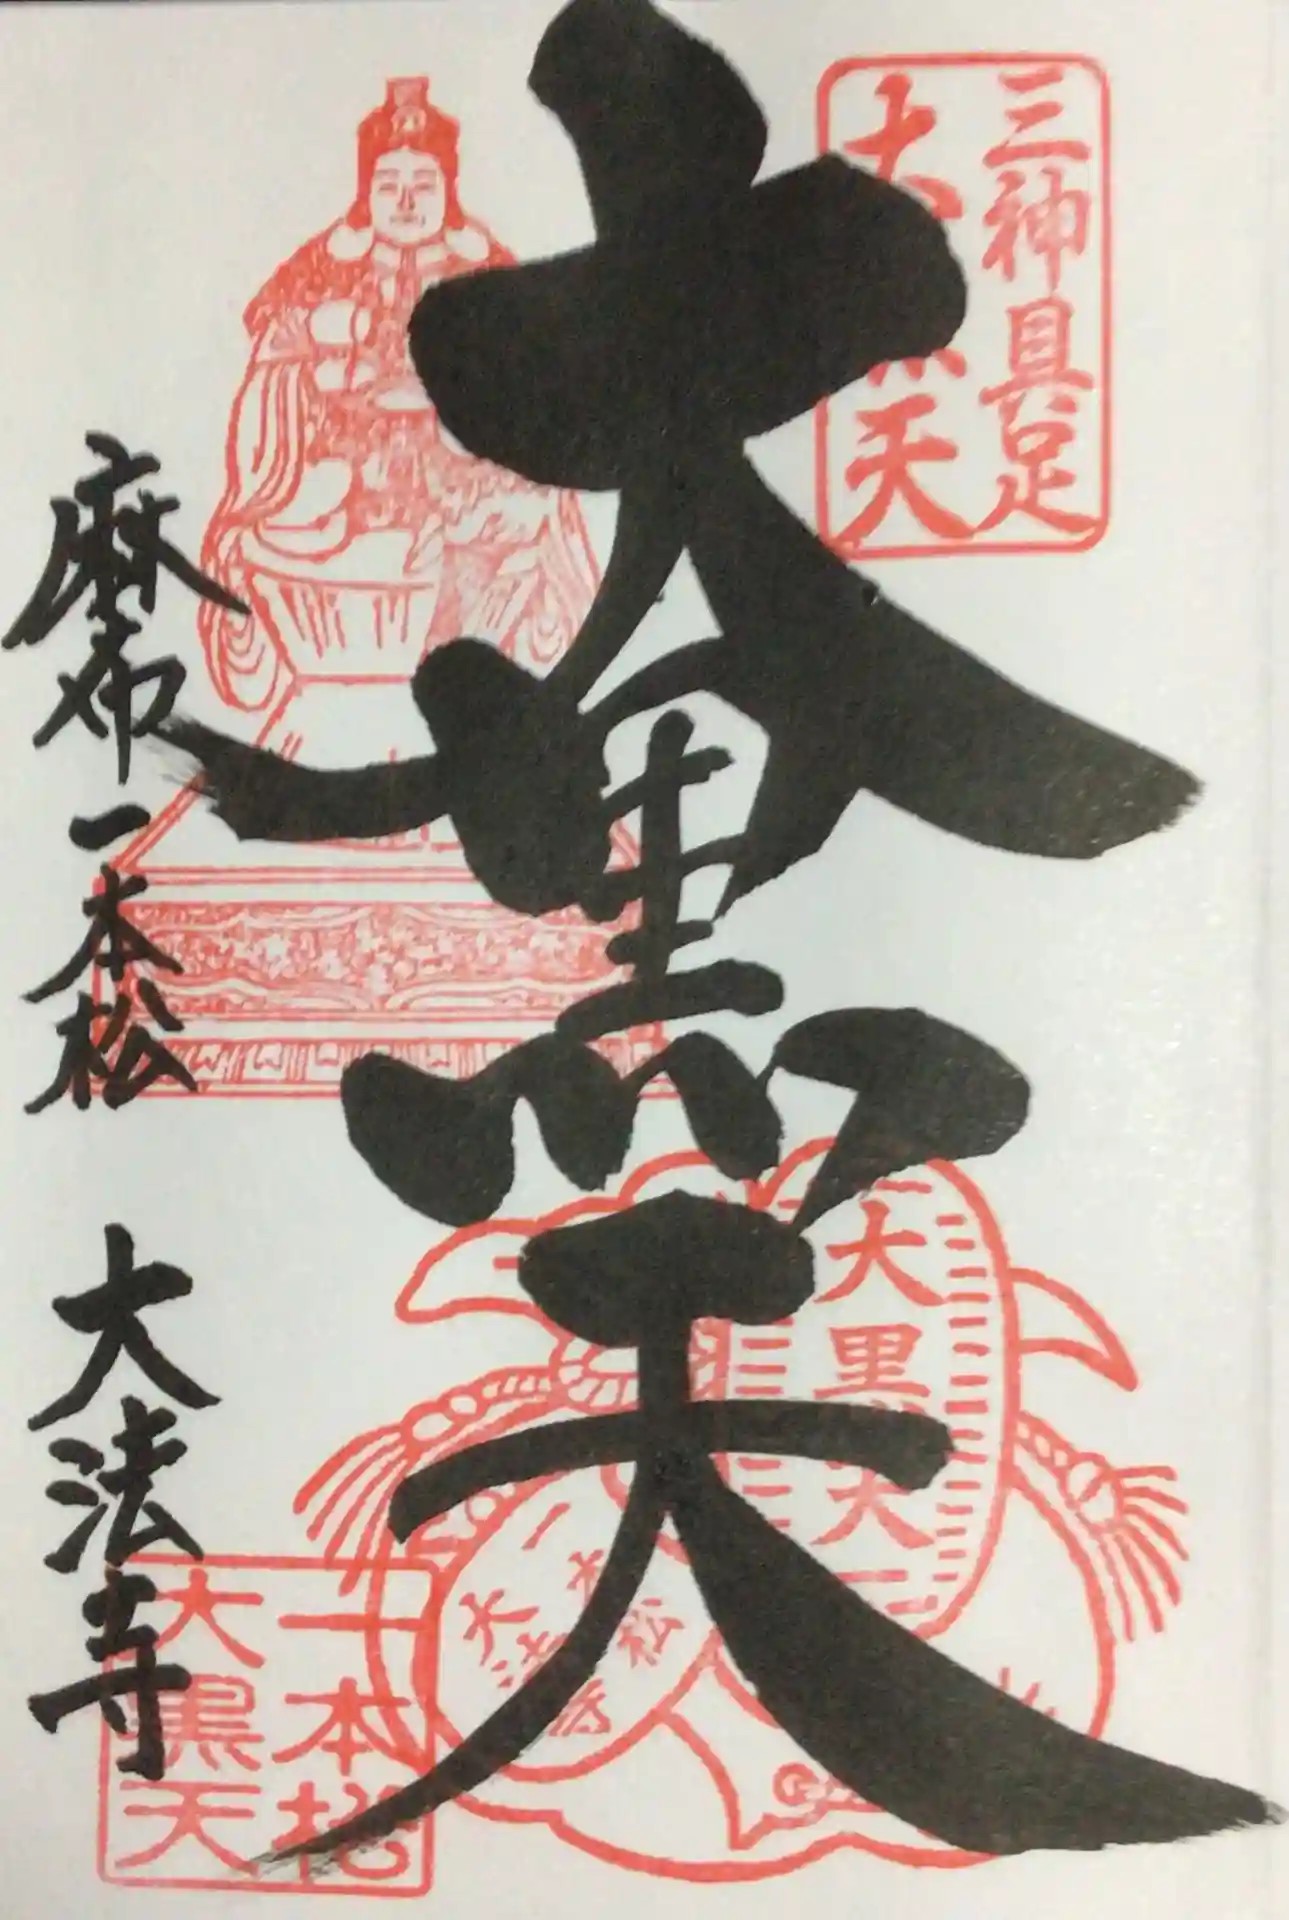 三神具足
大黒天
大黒天
麻布一本松 大法寺
大黒天
一本松
大法寺
一本松
大黒天